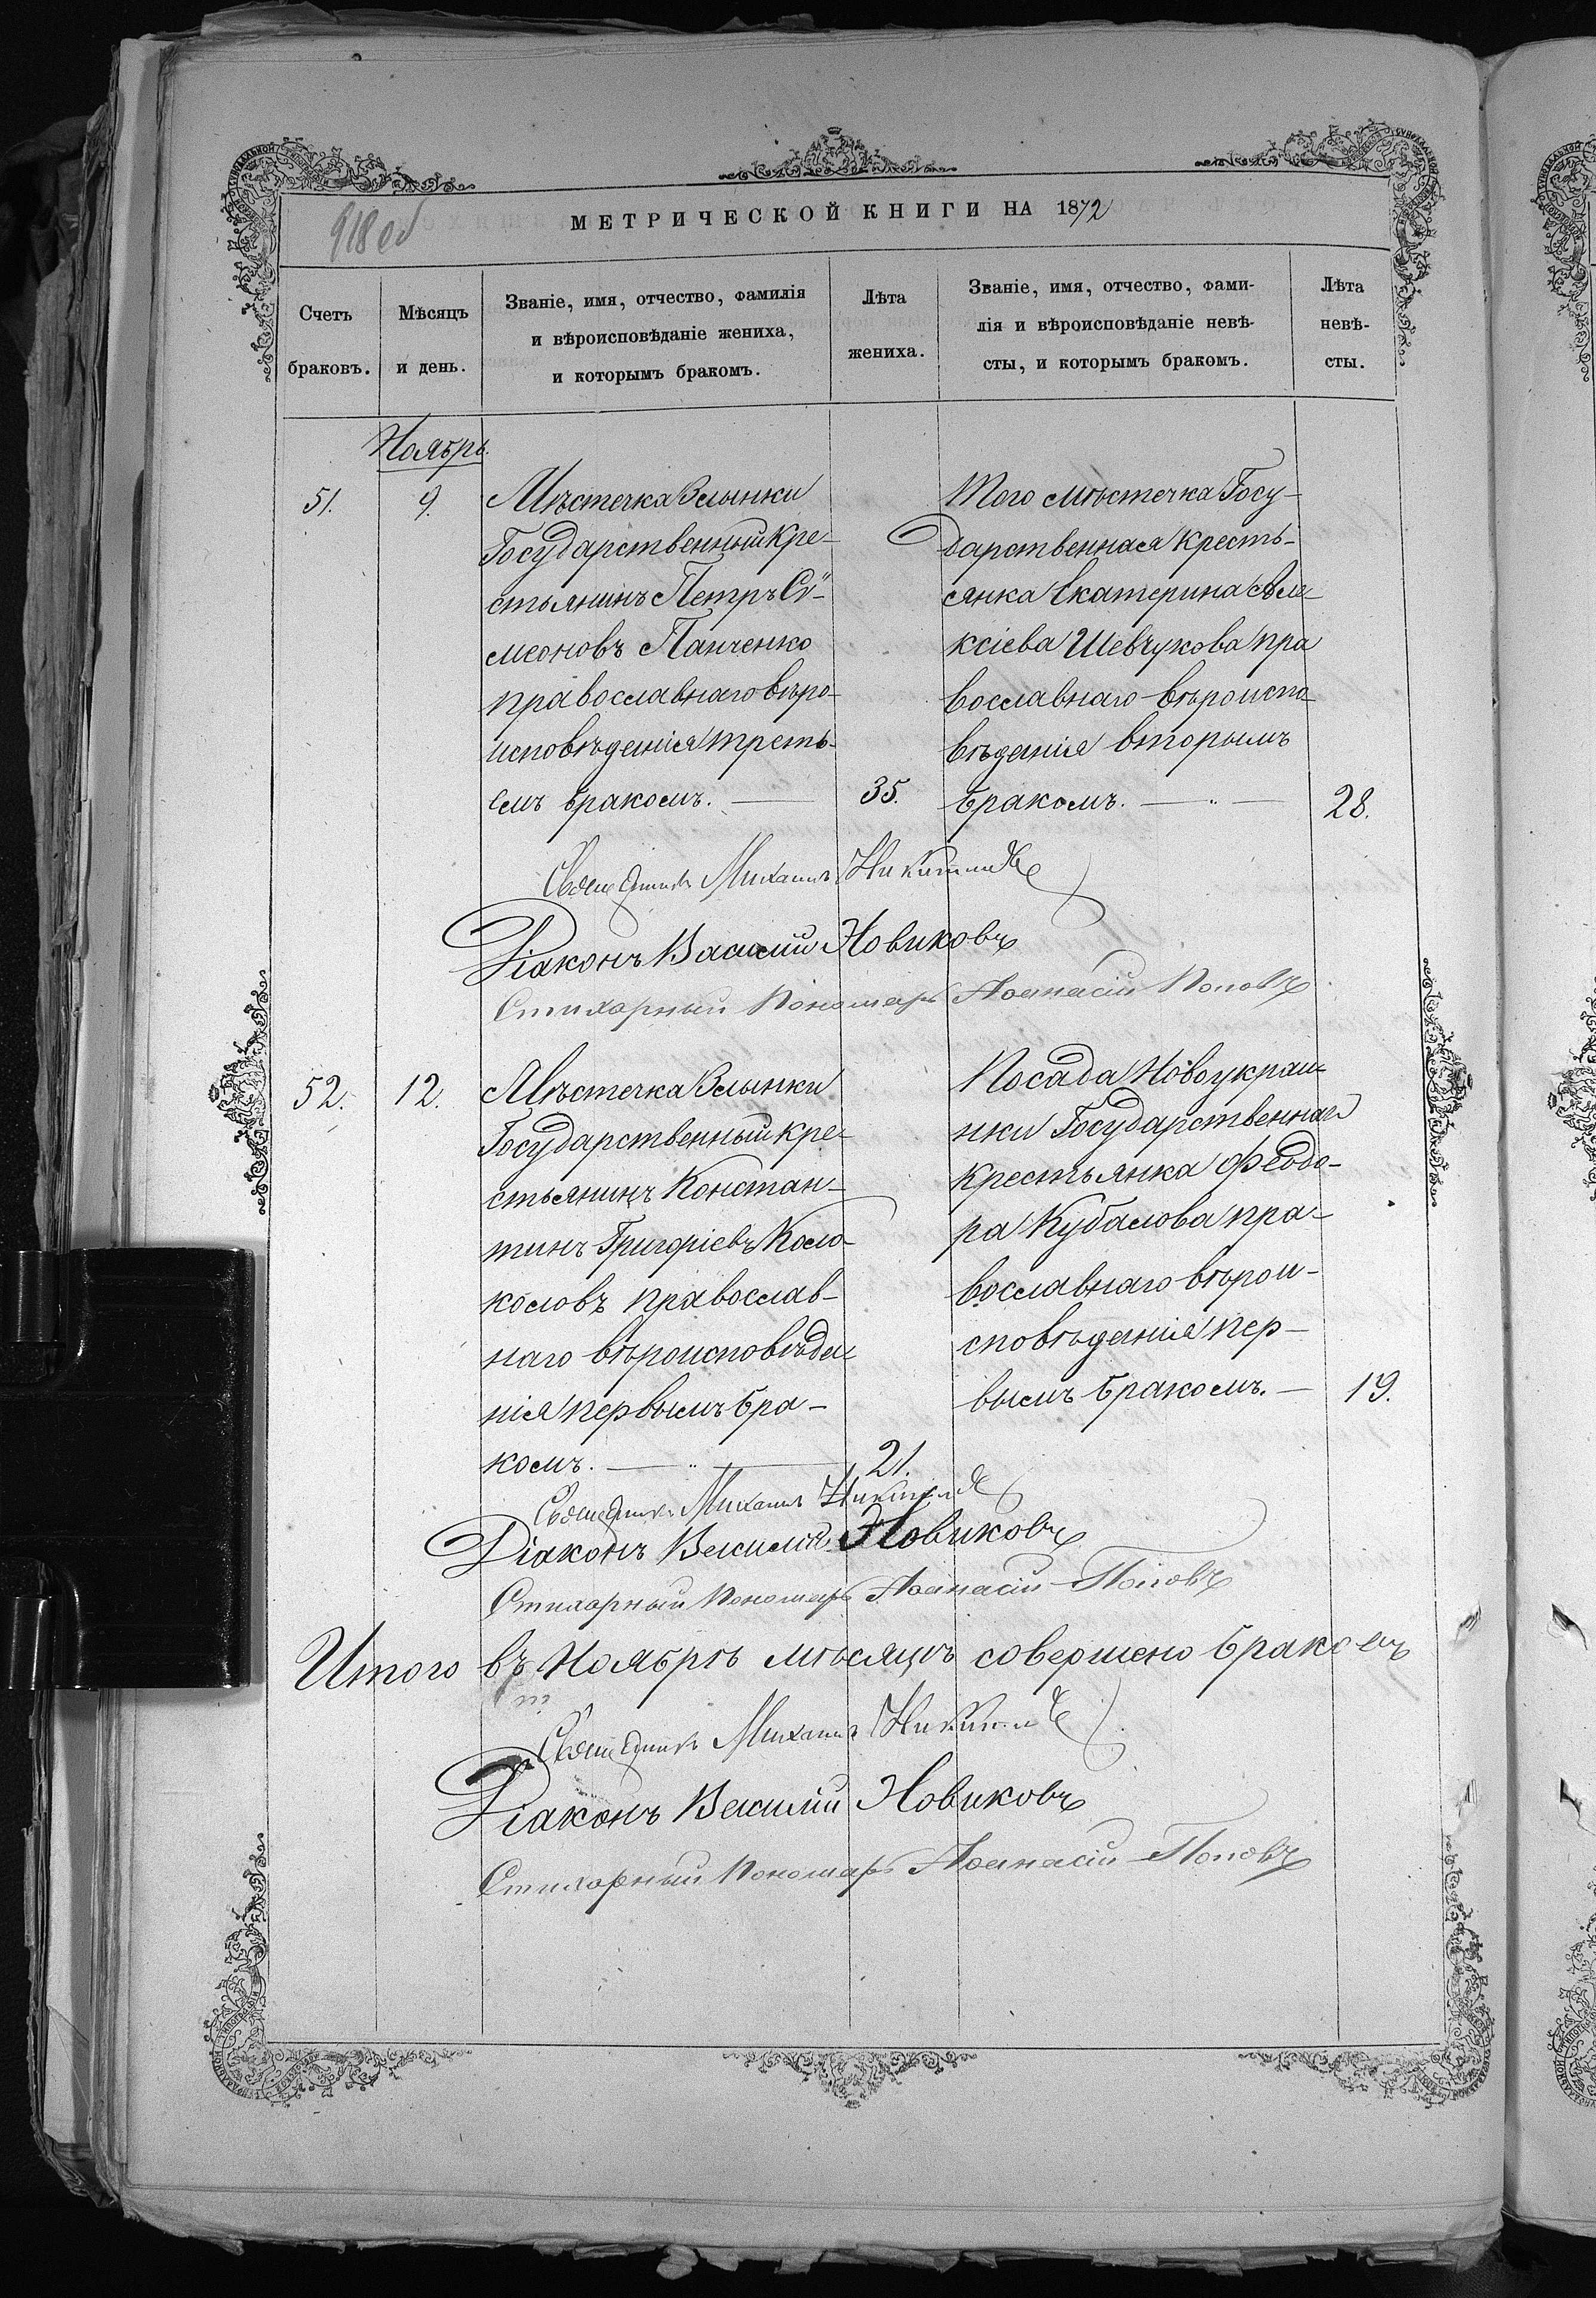 918 об
МЕТРИЧЕСКОЙ КНИГИ НА 1872
Счетъ
браковъ.
Мѣсяцъ
и день.
Званіе, имя, отчество, фамилія
и вѣроисповѣданіе жениха,
и которымъ бракомъ.
Лѣта
жениха.
Званіе, имя, отчество, фами-
лія и вѣроисповѣданіе невѣ-
сты, и которымъ бракомъ.
Лѣта
невѣ-
сты.
Ноябрь.
51.
9.
Мѣстечка Злынки
Государственный кре-
стьянинъ Петръ Сѵ-
меоновъ Панченко
православнаго вѣро-
исповѣданія треть-
емъ бракомъ.
35.
Того мѣстечка Госу-
дарственная кресть-
янка Екатерина Але-
ксіева Шевчукова пра
вославнаго вѣроиспо-
вѣданія вторымъ
бракомъ.
28.
Священникъ Михаилъ
Діаконъ Василій Новиковъ
Стихарный Пономарь Аѳанасій Поповъ
52.
12.
Мѣстечка Злынки
Государственный кре-
стьянинъ Констан-
тинъ Григоріевъ Коло-
коловъ православ-
наго вѣроисповѣда-
нія первымъ бра-
комъ.
21.
Посада Новоукраи-
нки Государственная
крестьянка Феодо-
ра Кубалова пра-
вославнаго вѣрои-
сповѣданія пер-
вымъ бракомъ.
19.
Священникъ Михаилъ
Діаконъ Василій Новиковъ
Стихарный Пономарь Аѳанасій Поповъ
Итого въ Ноябрѣ мѣсяцѣ совершено браковъ
Священникъ Михаилъ
Діаконъ Василій Новиковъ
Стихарный Пономарь Аѳанасій Поповъ